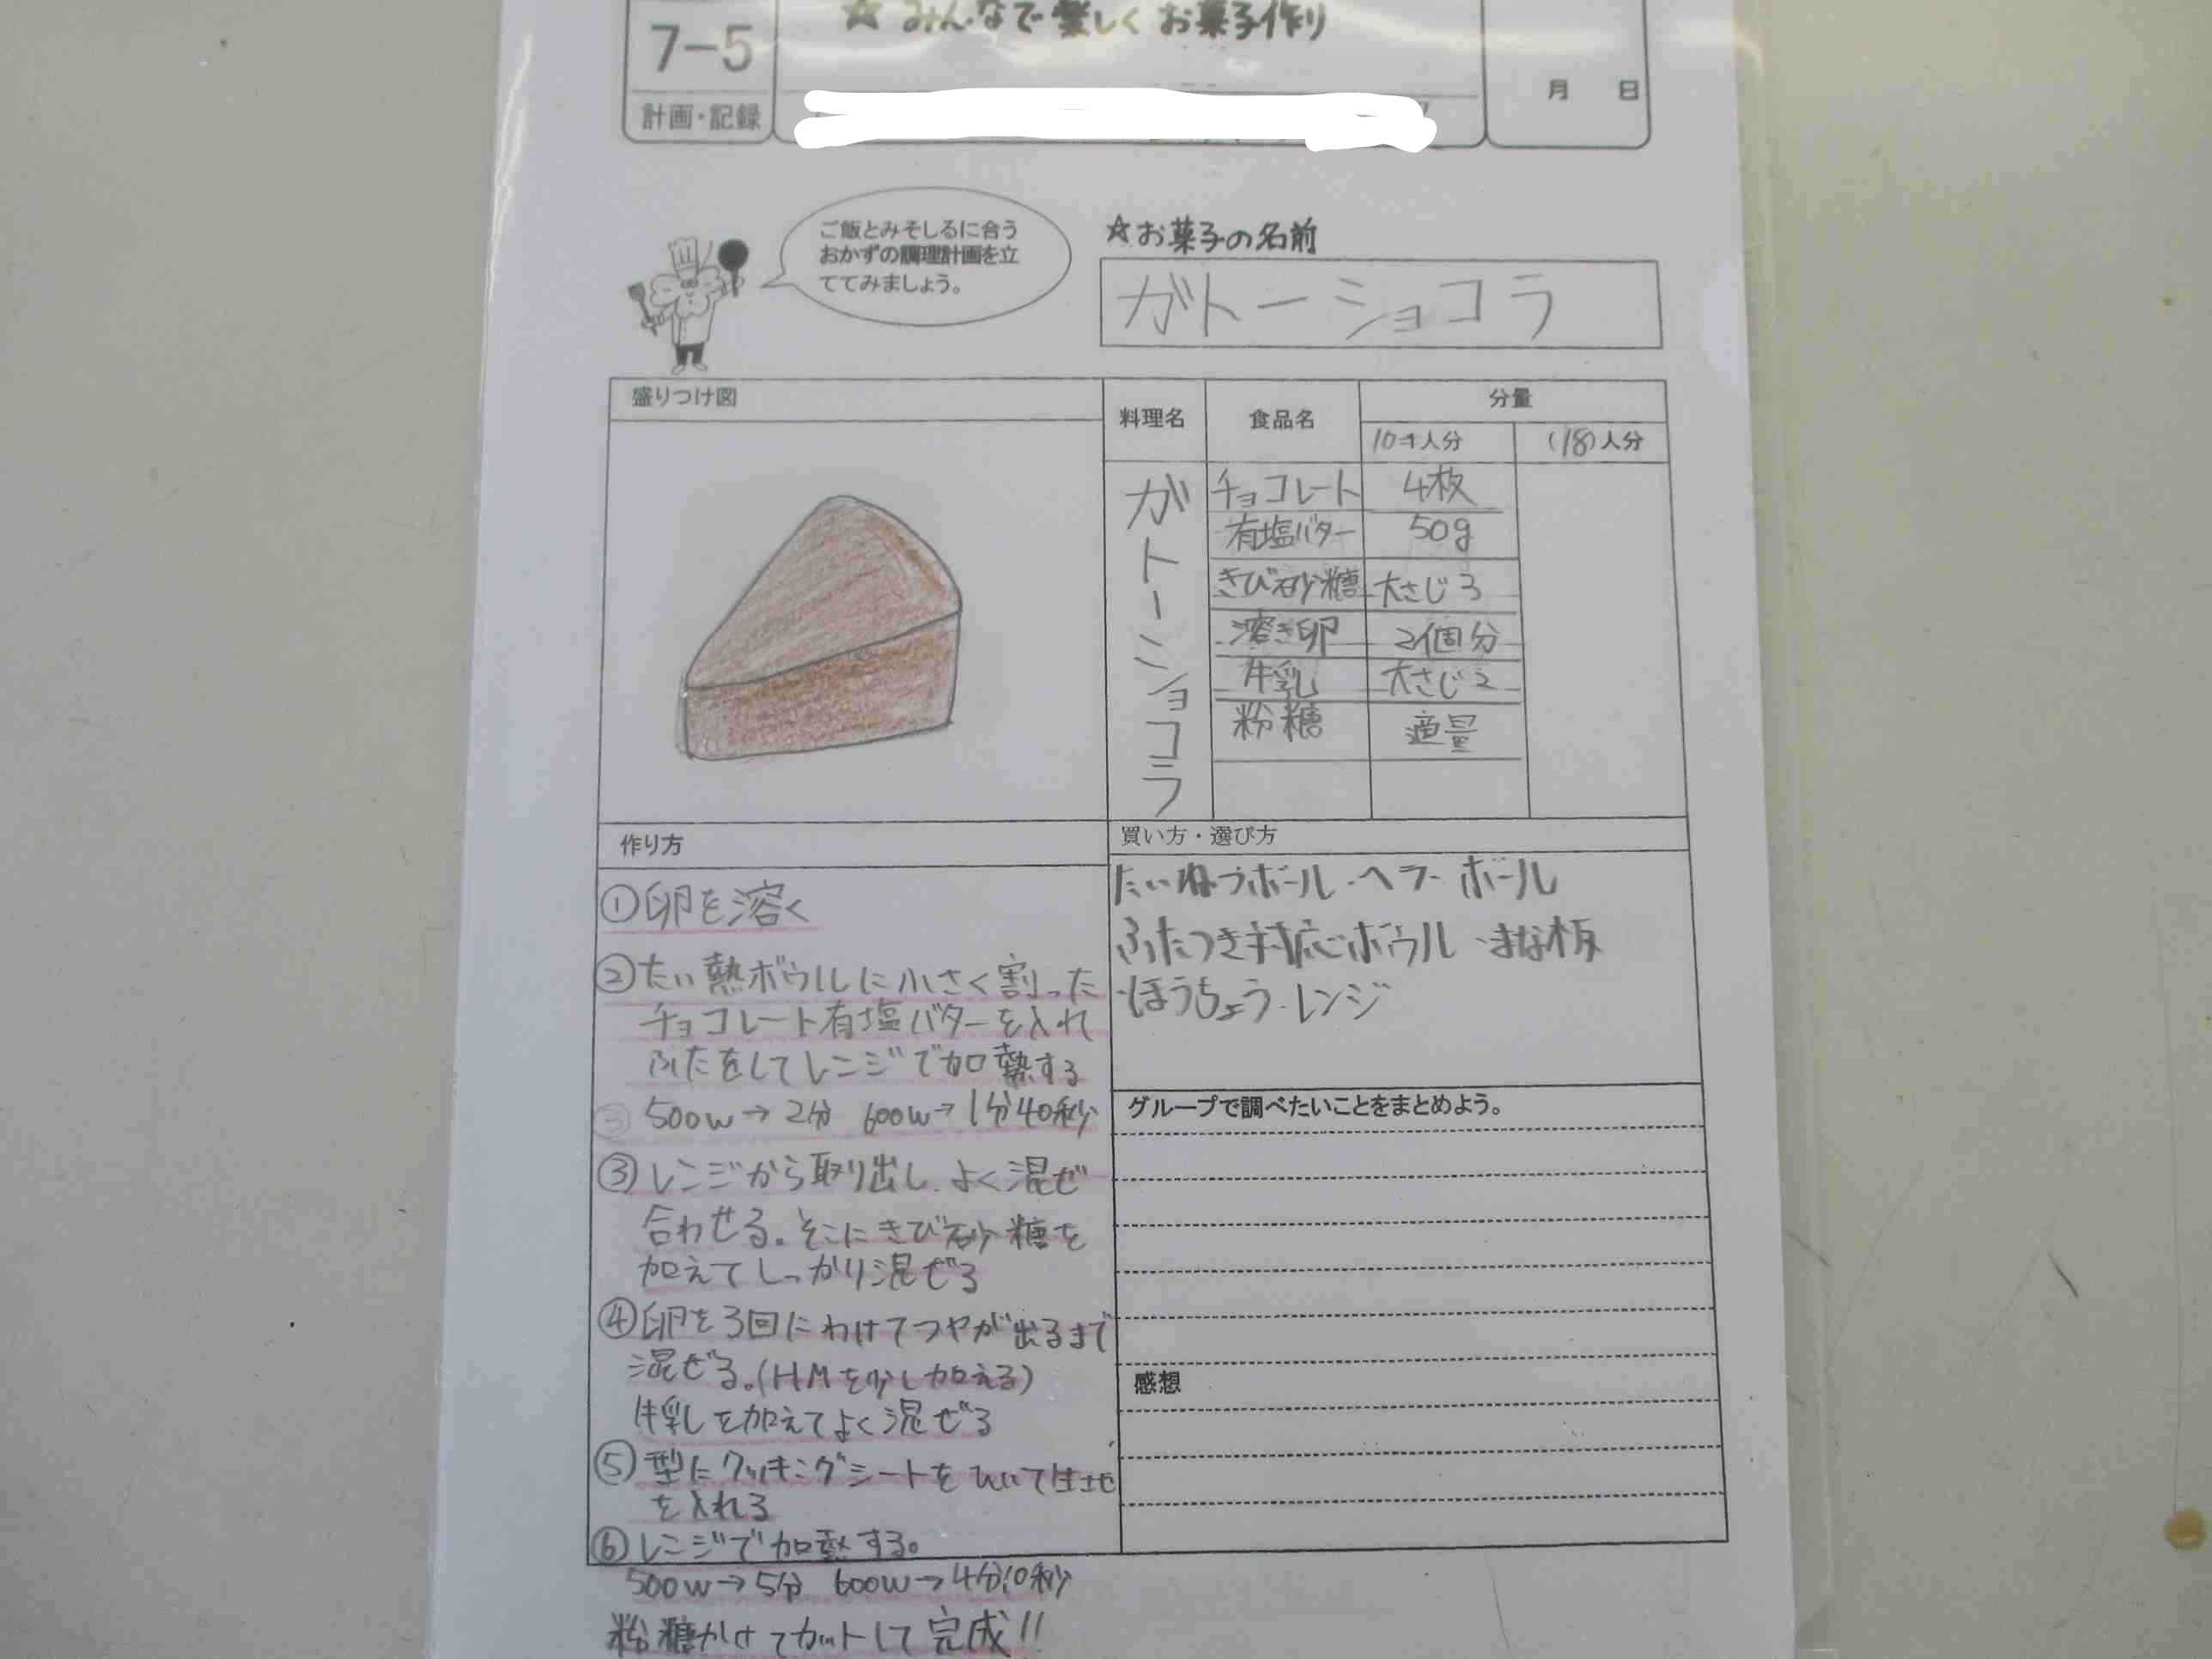 7-5
計画・記録
☆みんなで楽しくお菓子作り
月 日
ご飯とみそしるに合う
おかずの調理計画を立
ててみましょう。
☆お菓子の名前
ガトーショコラ
盛りつけ図
料理名
食品名
分量
人分
(18)人分
ガトーショコラ
チョコレート 4枚
有塩バター 50g
きび砂糖 大さじ3
溶き卵 2個分
牛乳 大さじ2
粉糖 適量
作り方
①卵を溶く
②たい熱ボウルに小さく割った
チョコレート有塩バターを入れ
ふたをしてレンジで加熱する
500w→2分 600w→1分40秒
③レンジから取り出し、よく混ぜ
合わせる。そこにきび砂糖を
加えてしっかり混ぜる
④卵を3回にわけてツヤが出るまで
混ぜる。(HMを少し加える)
牛乳を加えてよく混ぜる
⑤型にクッキングシートをひいて生地
を入れる
⑥レンジで加熱する。
500w→5分 600w→4分10秒
粉糖かけてカットして完成!!
買い方・選び方
たいねつボール・ヘラ・ボール
ふたつき対応ボウル・まな板
・ほうちょう・レンジ
グループで調べたいことをまとめよう。
感想